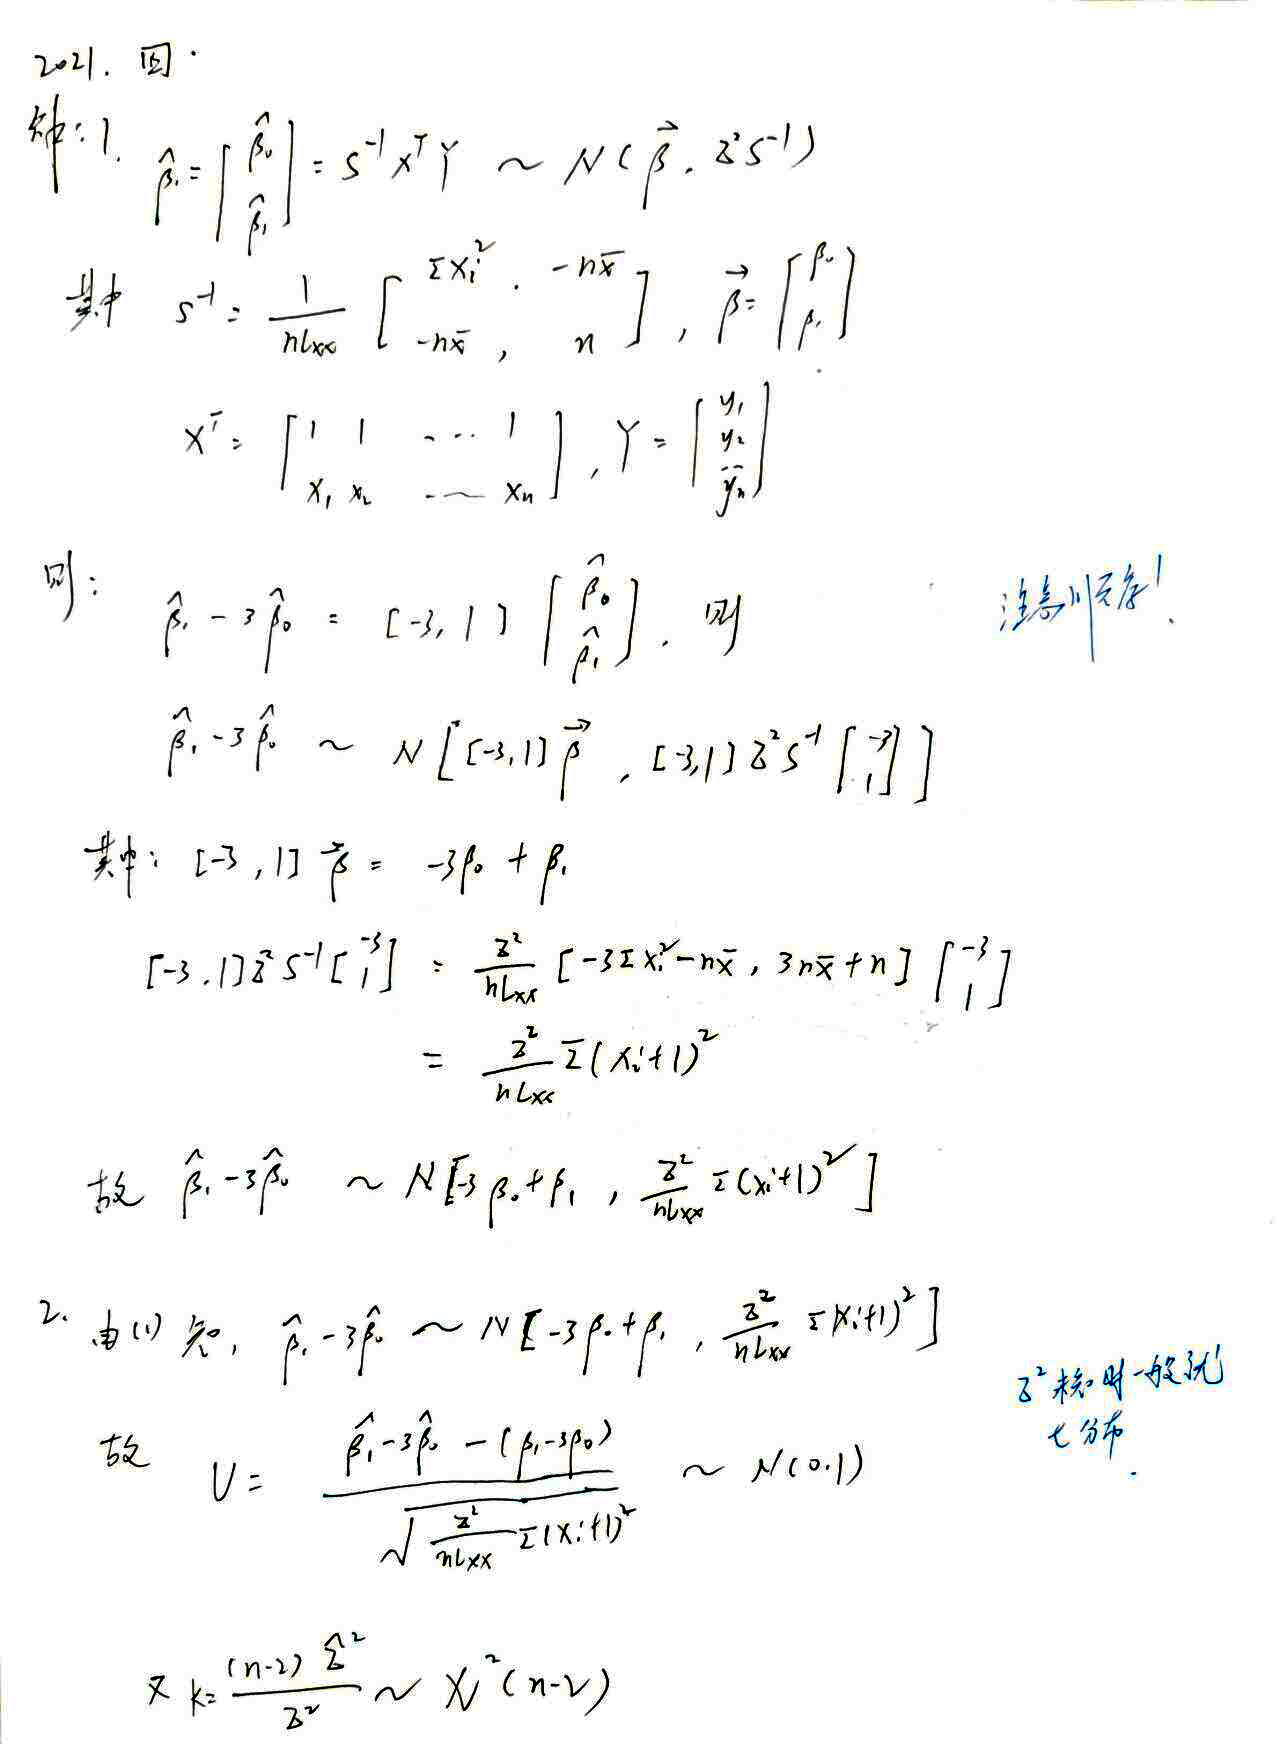 2021. 回.
解: 1. β̂ = [β̂₀ β̂₁] = S⁻¹XᵀY ~ N(β⃗, σ²S⁻¹)
其中 S⁻¹ = 1/(nLxx) [Σxᵢ², -nx̄ ; -nx̄, n], β⃗ = [β₀ β₁]
Xᵀ = [1 1 ... 1 ; x₁ x₂ ... xₙ], Y = [y₁ y₂ ... yₙ]
则: β̂₁ - 3β̂₀ = [-3, 1] [β̂₀ β̂₁]. 则
注意顺序!
β̂₁ - 3β̂₀ ~ N[[-3, 1]β⃗, [-3, 1]σ²S⁻¹[-3 1]]
其中: [-3, 1]β⃗ = -3β₀ + β₁
[-3, 1]σ²S⁻¹[-3 1] = σ²/(nLxx) [-3Σxᵢ² - nx̄, 3nx̄ + n] [-3 1]
= σ²/(nLxx) Σ(xᵢ+1)²
故 β̂₁ - 3β̂₀ ~ N[-3β₀ + β₁, σ²/(nLxx) Σ(xᵢ+1)²]
2. 由(1)知, β̂₁ - 3β̂₀ ~ N[-3β₀ + β₁, σ²/(nLxx) Σ(xᵢ+1)²]
σ²未知时一般就
t分布.
故 U = (β̂₁ - 3β̂₀ - (β₁ - 3β₀)) / √(σ²/(nLxx) Σ(xᵢ+1)²) ~ N(0.1)
又 k = (n-2)σ̂²/σ² ~ χ²(n-2)